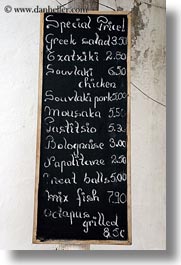 © www.danheller.com
Special Price!
Greek salad 3.50
Tzatziki 2.80
Souvlaki 6.50
chicken
Souvlaki pork 5.00
Mousaka 5.50
Pastitsio 5.30
Bolognaise 3.00
Napolitane 2.50
Meat balls 5.00
mix fish 7.90
octapus
grilled
8,50